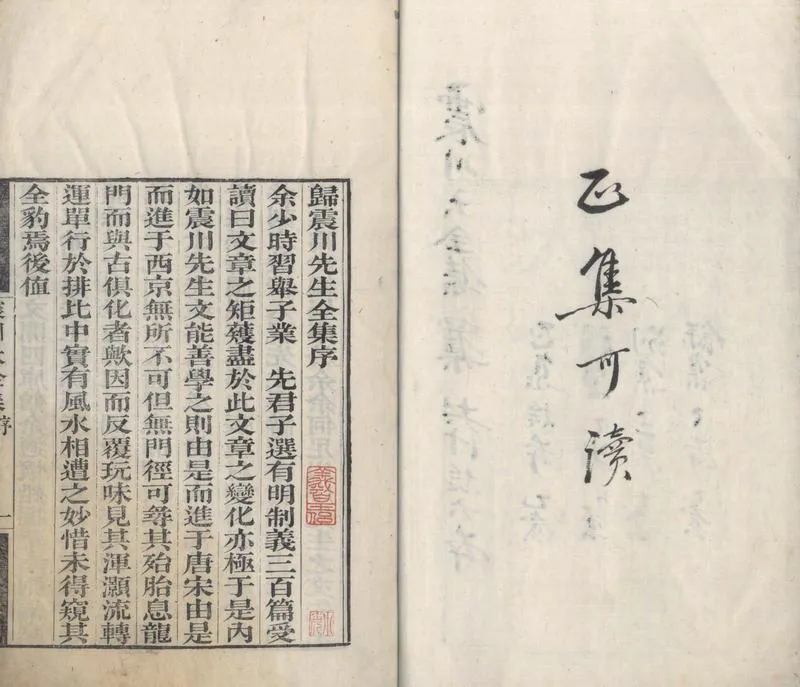 正集可讀
歸震川先生全集序
余少時習舉子業　先君子選有明制義三百篇受
讀曰文章之矩矱盡於此文章之變化亦極于是內
如震川先生文能善學之則由是而進于唐宋由是
而進于西京無所不可但無門徑可尋其殆胎息龍
門而與古俱化者歟因而反覆玩味見其渾灝流轉
運單行於排比中實有風水相遭之妙惜未得窺其
全豹焉後值
震川大全集 序 一